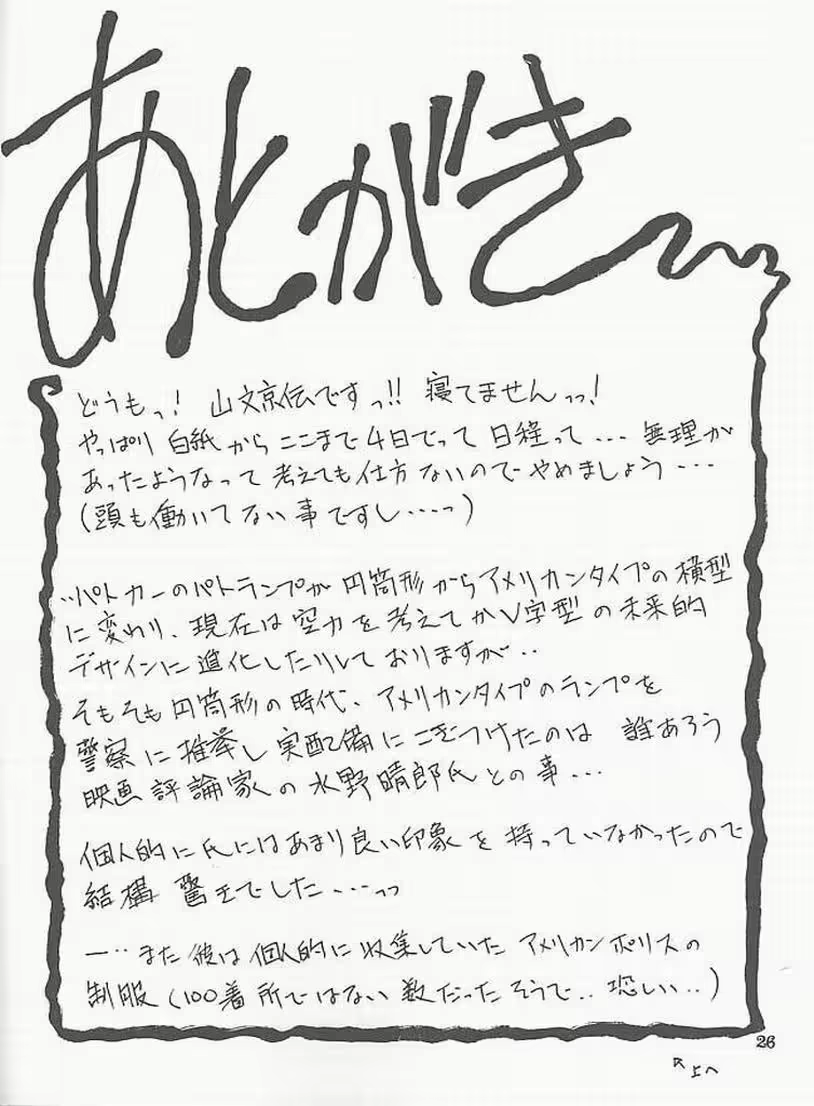 あとがき
どうもっ! 山文京伝ですっ!! 寝てませんっっ!
やっぱり 白紙から ここまで 4日でって 日程って... 無理が
あったようなって 考えても仕方ないので やめましょう...
(頭も働いてない事ですし....っ)
..パトカーのパトランプが 円筒形からアメリカンタイプの横型
に変わり、現在は空力を考えてかV字型の未来的
デザインに進化したりしておりますが..
そもそも円筒形の時代、アメリカンタイプのランプを
警察に推挙し実配備にこぎつけたのは 誰あろう
映画評論家の水野晴郎氏との事...
個人的に氏にはあまり良い印象を持っていなかったので
結構 驚きでした...っっ
ー..また彼は個人的に収集していた アメリカンポリスの
制服(100着所ではない数だったそうで..恐しい..)
26
↖上へ